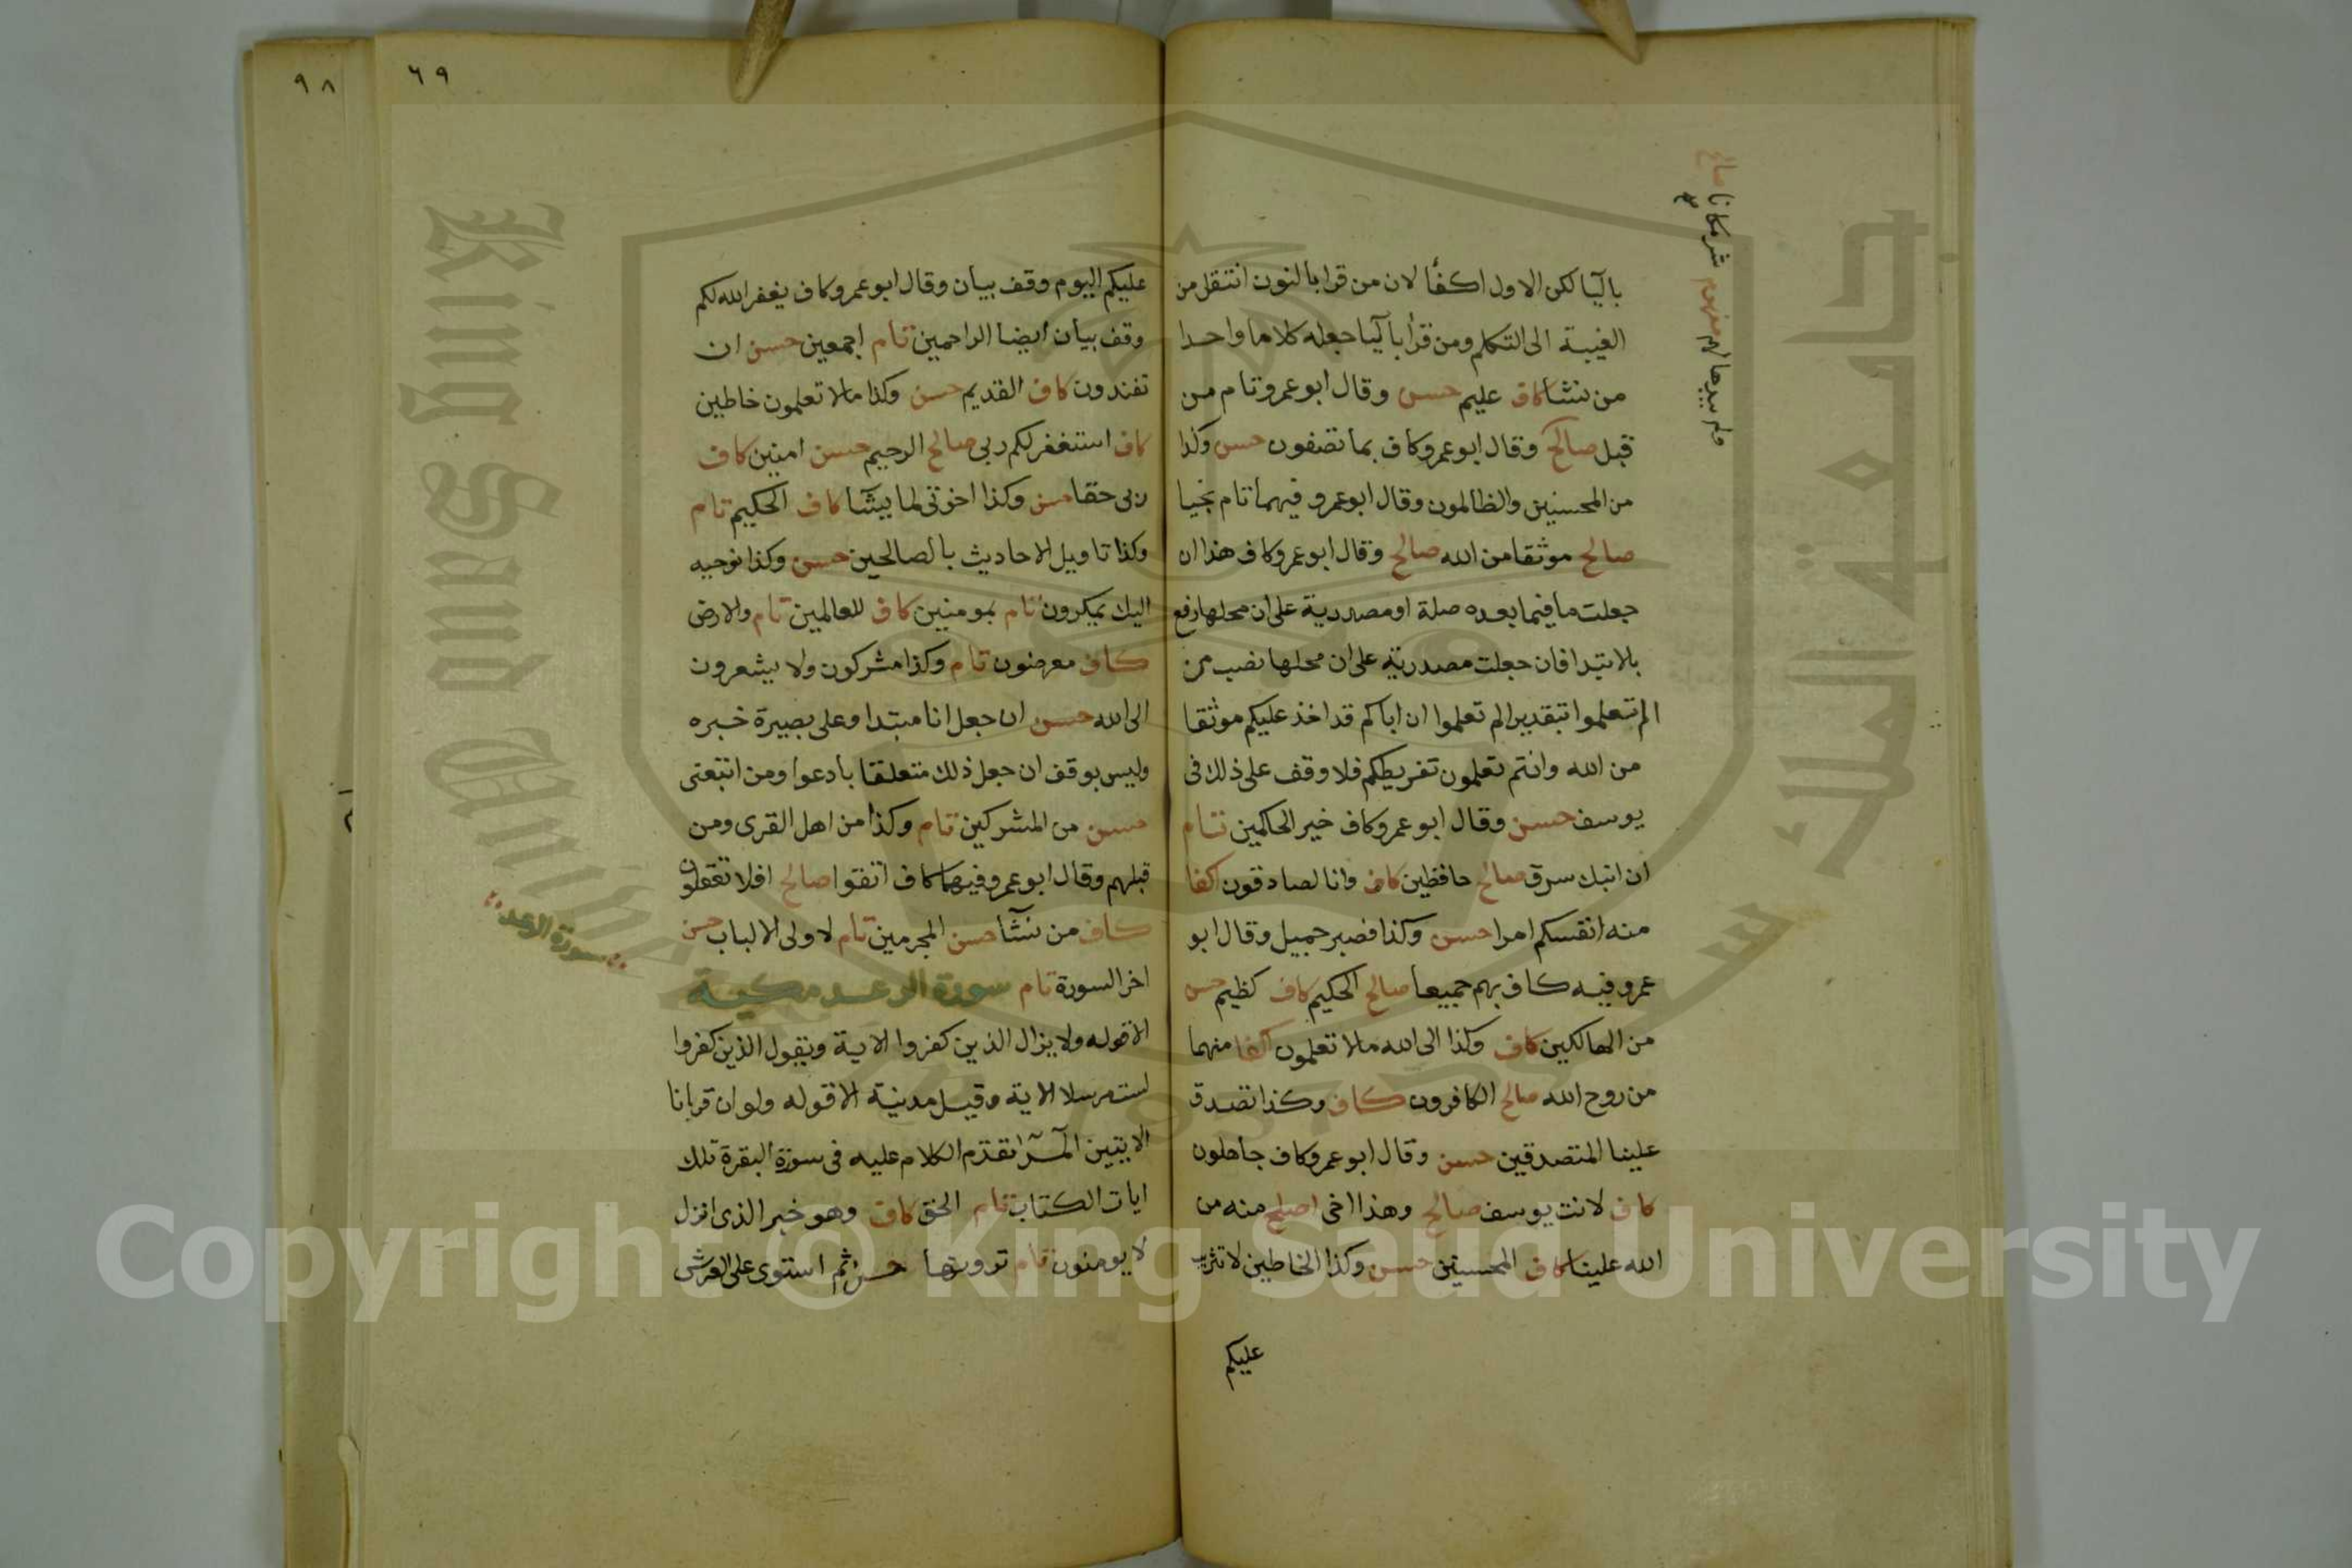 باليا لكن الاول اكفأ لان من قرا بالنون انتقل من
الغيبة الى التكلم ومن قرأ باليا جعله كلاما واحدا
من نشا كاف عليم حسن وقال ابو عمرو تام من
قبل صالح وقال ابو عمرو كاف بما تصفون حسن وكذا
من المحسنين والظالمون وقال ابو عمرو فيهما تام نجيا
صالح موثقا من الله صالح وقال ابو عمرو كاف هذا ان
جعلت ما فيما بعده صلة او مصدرية على ان محلها رفع
بالابتدا فان جعلت مصدرية على ان محلها نصب من
الم تعلموا بتقدير الم تعلموا ان اباكم قد اخذ عليكم موثقا
من الله وانتم تعلمون تفريطكم فلا وقف على ذلك في
يوسف حسن وقال ابو عمرو كاف خير الحاكمين تام
ان ابنك سرق صالح حافظين كاف وانا لصادقون اكفا
منه انفسكم امرا حسن وكذا فصبر جميل وقال ابو
عمرو فيه كاف بهم جميعا صالح الحكيم كاف كظيم حسن
من الهالكين كاف وكذا الى الله مالا تعلمون اكفا منهما
من روح الله صالح الكافرون كاف وكذا تصدق
علينا المتصدقين حسن وقال ابو عمرو كاف جاهلون
كاف لانت يوسف صالح وهذا اخى اصلح منه من
الله علينا كاف المحسنين حسن وكذا الخاطين لا تثريب
عليكم
ولم يبدها لهم مفهوم شر مكانا صالح
٦٩
٩٨
عليكم اليوم وقف بيان وقال ابو عمرو كاف يغفر الله لكم
وقف بيان ايضا الراحمين تام اجمعين حسن ان
تفندون كاف القديم حسن وكذا مالا تعلمون خاطين
كاف استغفر لكم ربى صالح الرحيم حسن امنين كاف
ربى حقا حسن وكذا اخوتى لما يشآ كاف الحكيم تام
وكذا تاويل الاحاديث بالصالحين حسن وكذا نوحيه
اليك يمكرون تام بمومنين كاف للعالمين تام والارض
كاف معرضون تام وكذا مشركون ولا يشعرون
الى الله حسن ان جعل انا مبتدا وعلى بصيرة خبره
وليس بوقف ان جعل ذلك متعلقا بادعوا ومن اتبعنى
حسن من المشركين تام وكذا من اهل القرى ومن
قبلهم وقال ابو عمرو فيهما كاف اتقوا صالح افلا تعقلون
كاف من نشآ حسن المجرمين تام لاولى الالباب حسن
اخر السورة تام سورة الرعد مكية
الا قوله ولا يزال الذين كفروا الاية ويقول الذين كفروا
لست مرسلا الاية وقيل مدنية الا قوله ولو ان قرانا
الايتين المر تقدم الكلام عليه فى سورة البقرة تلك
ايات الكتاب تام الحق كاف وهو خبر الذى انزل
لا يومنون تام ترونها حسن ثم استوى على العرش
سورة الرعد
King Saud Univer
جامعة الملك سعود
Copyright © King Saud University